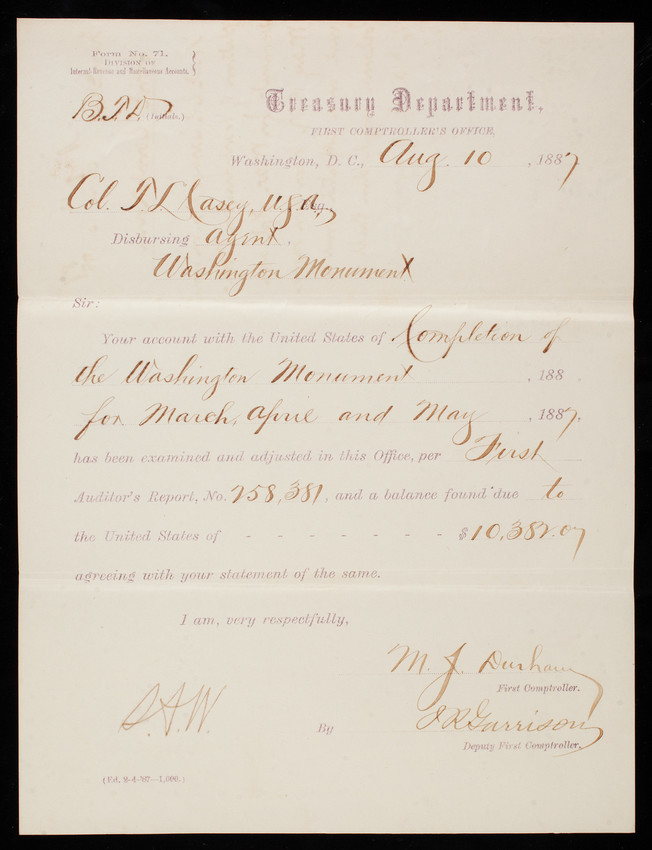 Form No. 71.
DIVISION OF
Internal Revenue and Miscellaneous Accounts.
B.T.D. (Initials.)
Treasury Department,
FIRST COMPTROLLER'S OFFICE,
Washington, D. C., Aug. 10, 1887
Col. T. L. Casey, U.S.A.,
Disbursing Agent.
Washington Monument
Sir:
Your account with the United States of Completion of
the Washington Monument, 188 .
for March, April and May, 1887,
has been examined and adjusted in this Office, per First
Auditor's Report, No. 258,381, and a balance found due to
the United States of - - - - - - - $10,382.07
agreeing with your statement of the same.
I am, very respectfully,
M. J. Durham
First Comptroller.
S.A.W.
By J R Garrison
Deputy First Comptroller.
(Ed. 2-4-'87—1,000.)